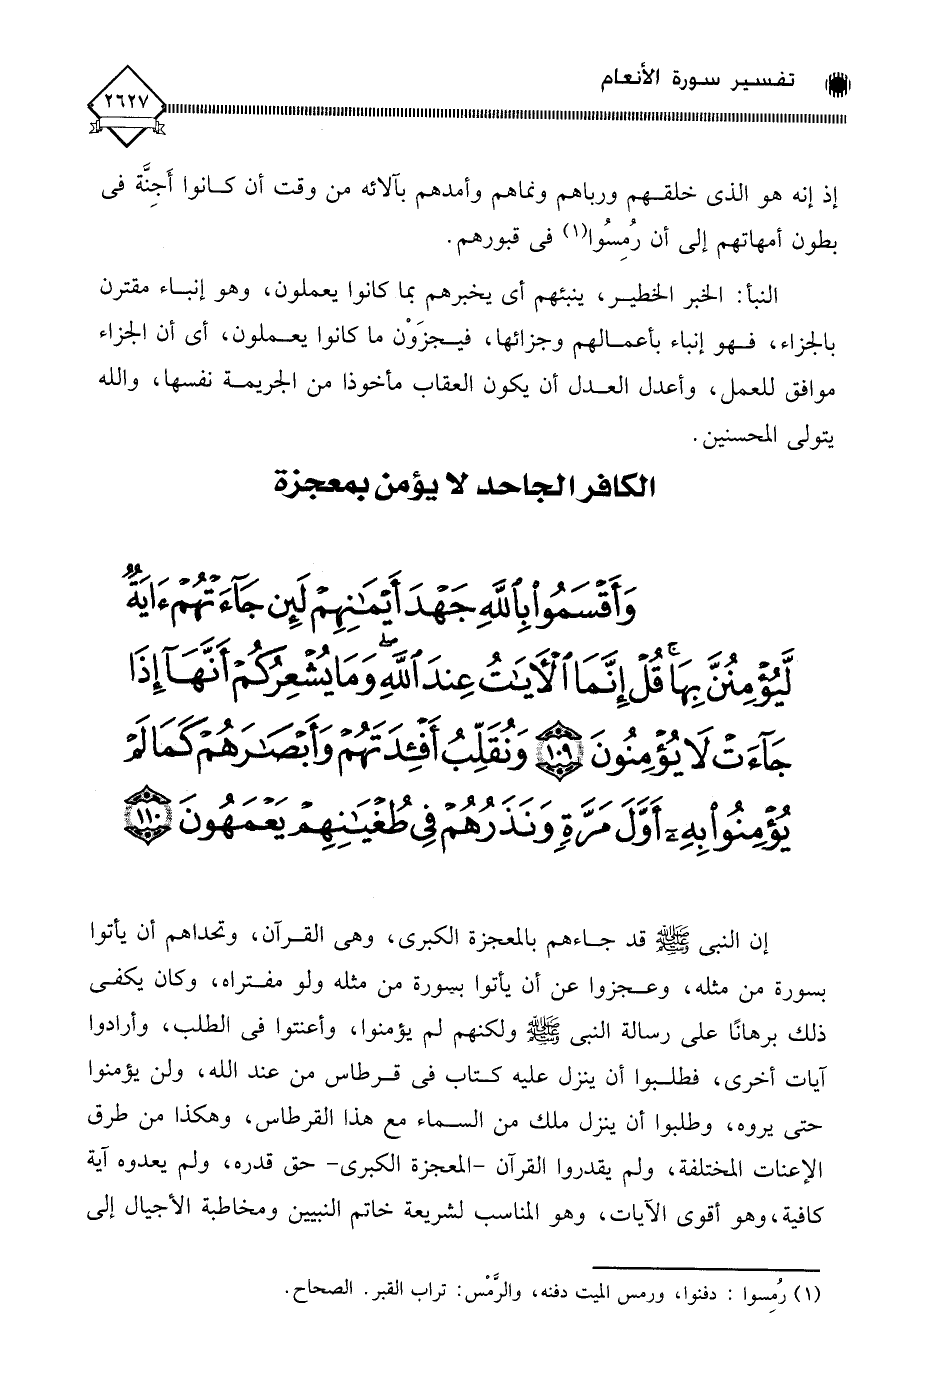 تفسير سورة الأنعام
٢٦٢٧
إذ إنه هو الذى خلقهم ورباهم ونماهم وأمدهم بآلائه من وقت أن كانوا أَجِنَّة فى
بطون أمهاتهم إلى أن رُمِسُوا(١) فى قبورهم.
النبأ: الخبر الخطير، ينبئهم أى يخبرهم بما كانوا يعملون، وهو إنباء مقترن
بالجزاء، فهو إنباء بأعمالهم وجزائها، فيجزَوْن ما كانوا يعملون، أى أن الجزاء
موافق للعمل، وأعدل العدل أن يكون العقاب مأخوذا من الجريمة نفسها، والله
يتولى المحسنين.
الكافر الجاحد لا يؤمن بمعجزة
وَأَقْسَمُوا۟ بِٱللَّهِ جَهْدَ أَيْمَٰنِهِمْ لَئِن جَآءَتْهُمْ ءَايَةٌ
لَّيُؤْمِنُنَّ بِهَا ۚ قُلْ إِنَّمَا ٱلْءَايَٰتُ عِندَ ٱللَّهِ ۖ وَمَا يُشْعِرُكُمْ أَنَّهَآ إِذَا
جَآءَتْ لَا يُؤْمِنُونَ ١٠٩ وَنُقَلِّبُ أَفْـِٔدَتَهُمْ وَأَبْصَٰرَهُمْ كَمَا لَمْ
يُؤْمِنُوا۟ بِهِۦٓ أَوَّلَ مَرَّةٍ وَنَذَرُهُمْ فِى طُغْيَٰنِهِمْ يَعْمَهُونَ ١١٠
إن النبى ﷺ قد جاءهم بالمعجزة الكبرى، وهى القرآن، وتحداهم أن يأتوا
بسورة من مثله، وعجزوا عن أن يأتوا بسورة من مثله ولو مفتراه، وكان يكفى
ذلك برهانًا على رسالة النبى ﷺ ولكنهم لم يؤمنوا، وأعنتوا فى الطلب، وأرادوا
آيات أخرى، فطلبوا أن ينزل عليه كتاب فى قرطاس من عند الله، ولن يؤمنوا
حتى يروه، وطلبوا أن ينزل ملك من السماء مع هذا القرطاس، وهكذا من طرق
الإعنات المختلفة، ولم يقدروا القرآن -المعجزة الكبرى- حق قدره، ولم يعدوه آية
كافية، وهو أقوى الآيات، وهو المناسب لشريعة خاتم النبيين ومخاطبة الأجيال إلى
(١) رُمِسوا : دفنوا، ورمس الميت دفنه، والرَّمْس: تراب القبر. الصحاح.